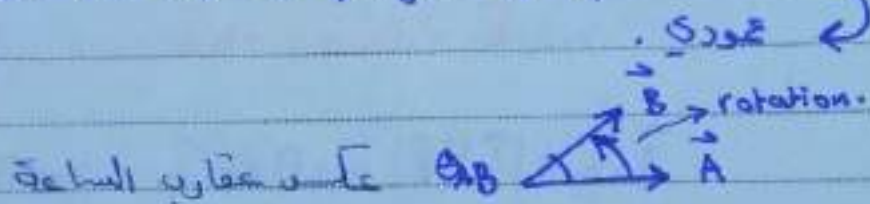 عمودي .
B → rotation.
عكس عقارب الساعة θAB A